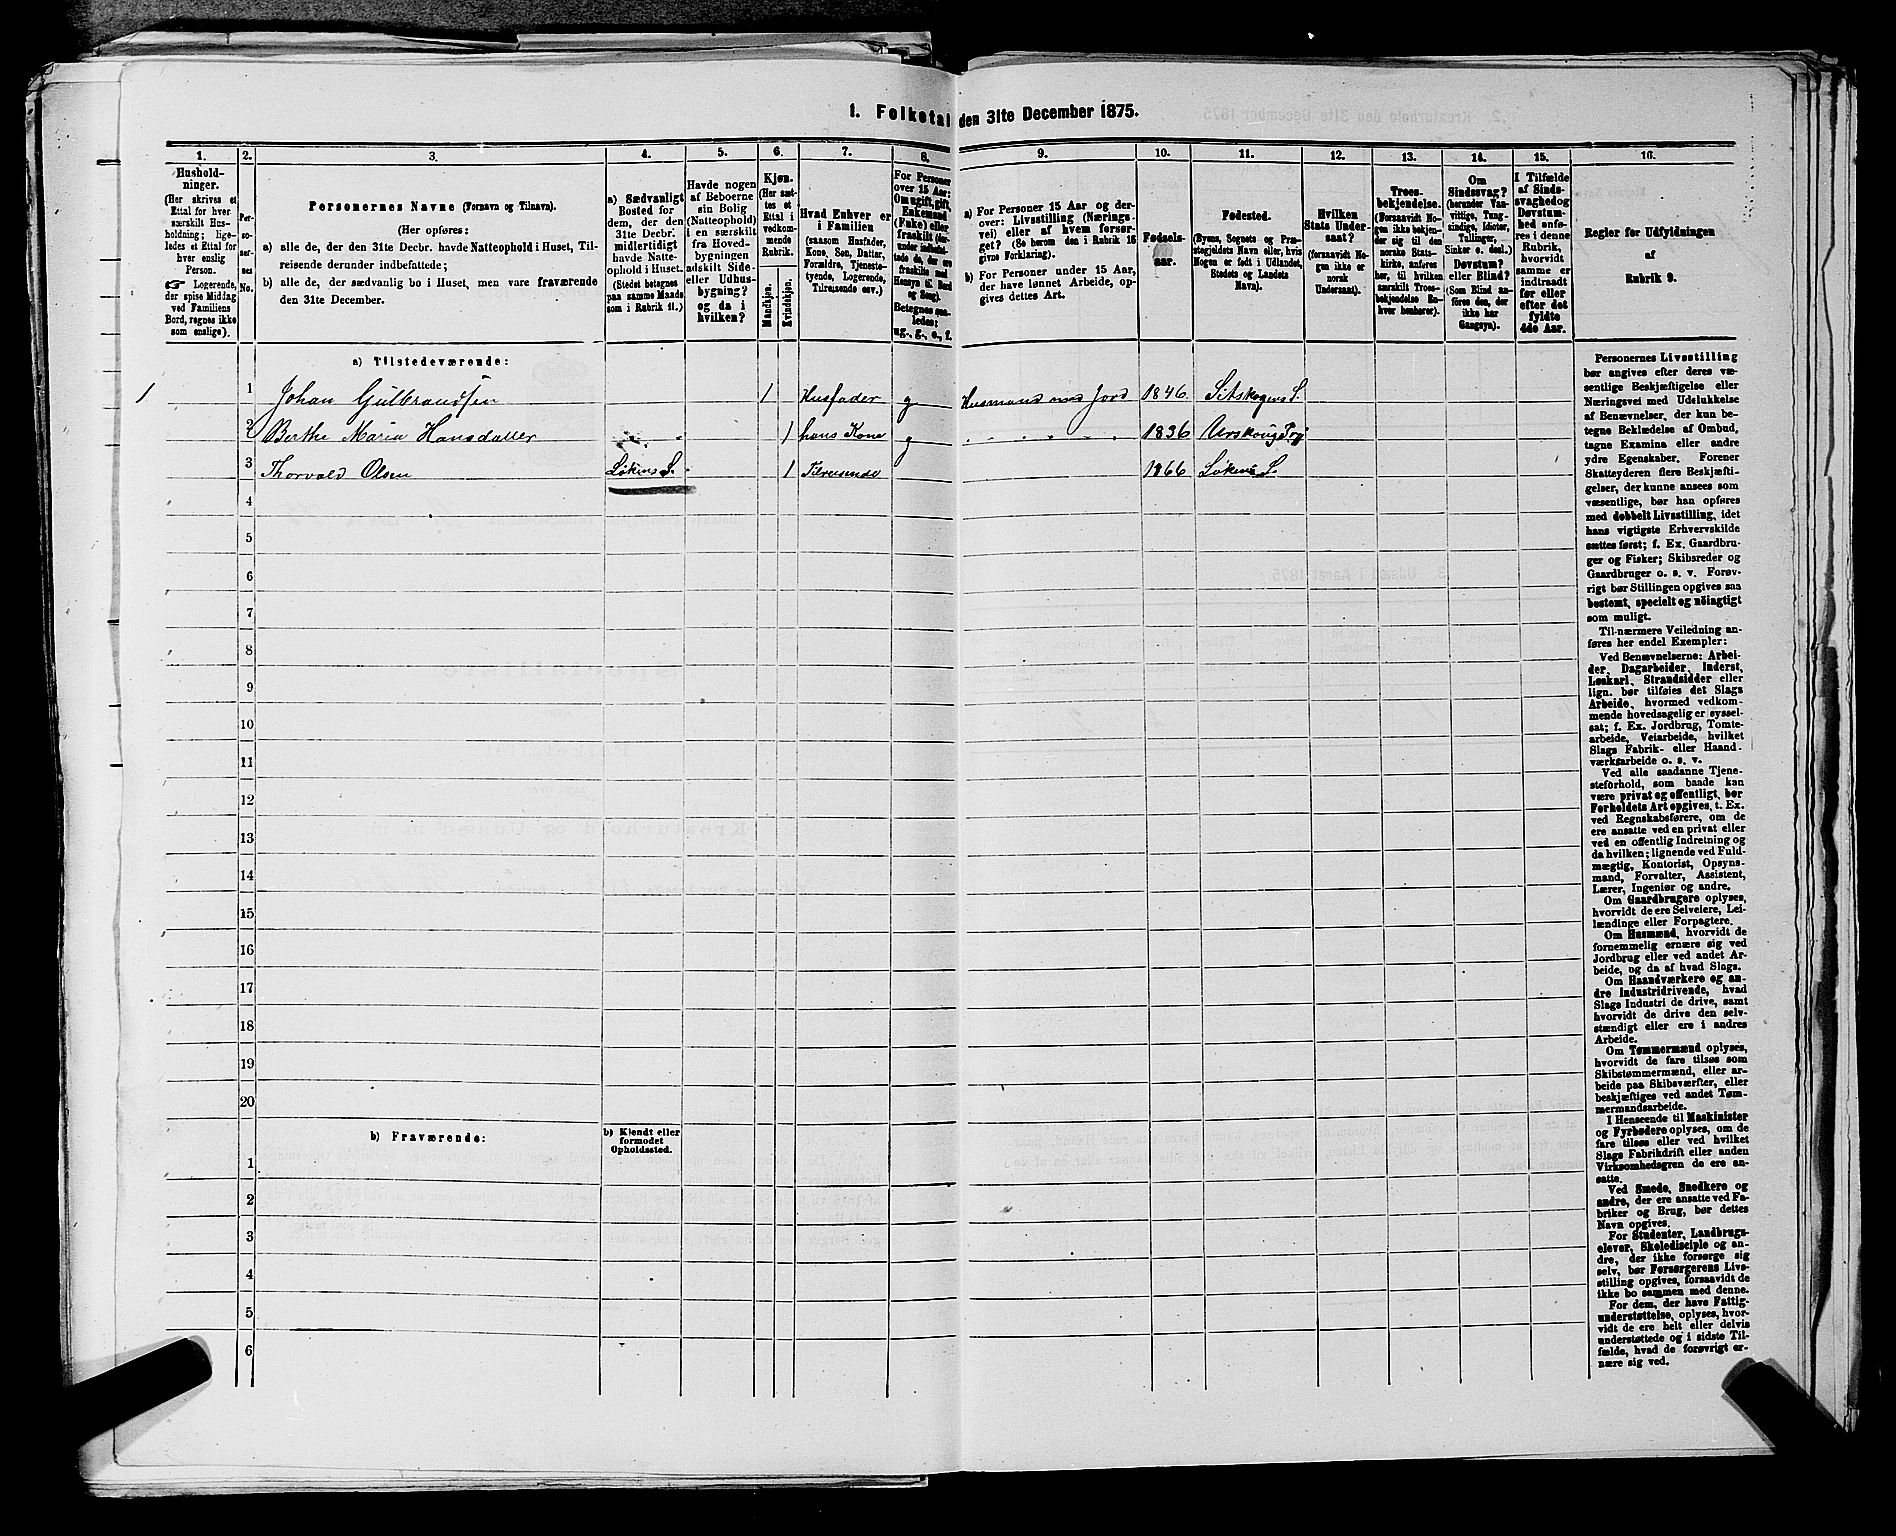 1. Folketal den 31te December 1875.
1. 2. 3. 4. 5. 6. 7. 8. 9. 10. 11. 12. 13. 14. 15. 16.
Hushold-
ninger.
(Her skrives et
Ettal for hver
særskilt Hus-
holdning; lige-
ledes et Ettal for
hver enslig
Person.
Logerende,
der spise Middag
ved Familiens
Bord, regnes ikke
som enslige).
Per-
so-
ner-
nes
No.
Personernes Navne (Fornavn og Tilnavn).
(Her opføres:
a) alle de, der den 31te Decbr. havde Natteophold i Huset, Til-
reisende derunder indbefattede;
b) alle de, der sædvanlig bo i Huset, men vare fraværende
den 31te December.
a) Sædvanligt
Bosted for
dem, der den
31te Decbr.
midlertidigt
havde Natte-
ophold i Huset.
(Stedet betegnes
paa samme Maade
som i Rubrik 11.)
Havde nogen
af Beboerne
sin Bolig
(Natteophold)
i en særskilt
fra Hoved-
bygningen
adskilt Side-
eller Udhus-
bygning?
og da i
hvilken?
Kjøn.
(Her sæt-
tes et
Ettal i
vedkom-
mende
Rubrik.
Mandkjøn.
Kvindekjøn.
Hvad Enhver er
i Familien
(saasom Husfader,
Kone, Søn, Datter,
Forældre, Tjeneste-
tyende, Logerende,
Tilreisende osv.)
For Personer
over 15 Aar:
Om ugift, gift,
Enkemand
(Enke) eller
fraskilt
Betegnes saa-
ledes:
ug., g., e., f.
a) For Personer 15 Aar og der-
over: Livsstilling (Nærings-
vei) eller af hvem forsør-
get? (Se herom den i Rubrik 16
givne Forklaring).
b) For Personer under 15 Aar,
der have lønnet Arbeide, op-
gives dettes Art.
Fødsels-
aar.
Fødested.
(Byens, Sognets og Præ-
stegjeldets Navn eller, hvis
Nogen er født i Udlandet,
Stedets og Landets
Navn).
Hvilken
Stats Under-
saat?
(forsaavidt No-
gen ikke er
norsk
Undersaat).
Troes-
bekjendelse.
(Forsaavidt No-
gen ikke bekjen-
der sig til den
norske Stats-
kirke, anføres
her, til hvilken
særskilt Troes-
bekjendelse En-
hver henhører).
Om
Sindssvag?
(herunder Van-
vittige, Tung-
sindige, Idioter,
Tullinger,
Sinker o. desl.).
Døvstum?
eller Blind?
(Som Blind an-
føres den, der
ikke har
Gangsyn).
I Tilfælde
af Sinds-
svaghed og
Døvstum-
hed anfø-
res i denne
Rubrik,
hvorvidt
samme er
indtraadt
før eller
efter det
fyldte
4de Aar.
Regler for Udfyldningen
af
Rubrik 9.
a) Tilstedeværende:
1 1 Johan Gulbrandsen 1 Husfader g Husmand med Jord 1846 Sitskogens S.
2 Berthe Maria Hansdatter 1 hans Kone g 1836 Urskoug Prgj
3 Thorvald Olsen Løkens S. 1 Tilreisende 1866 Løkens S.
4
5
6
7
8
9
10
11
12
13
14
15
16
17
18
19
20
b) Fraværende:
b) Kjendt eller
formodet
Opholdssted.
1
2
3
4
5
6
Personernes Livsstilling
bør angives efter deres væ-
sentlige Beskjæftigelse eller
Næringsvei med Udelukkelse
af Benævnelser, der kun be-
tegne Beklædelse af Ombud,
tagne Examina eller andre
ydre Egenskaber. Forener
Skatteyderen flere Beskjæfti-
gelser, der kunne ansees som
væsentlige, bør han opføres
med dobbelt Livsstilling, idet
hans vigtigste Erhvervskilde
sættes først; f. Ex. Gaardbru-
ger og Fisker; Skibsreder og
Gaardbruger o. s. v. Forøv-
rigt bør Stillingen opgives saa
bestemt, specielt og nøiagtigt
som muligt.
Til nærmere Veiledning an-
føres her endel Exempler:
Ved Benævnelserne: Arbei-
der, Dagarbeider, Inderst,
Løskarl, Strandsidder eller
lign. bør tilføies det Slags
Arbeide, hvormed vedkom-
mende hovedsagelig er syssel-
sat; f. Ex. Jordbrug, Tomte-
arbeide, Veiarbeide, hvilket
Slags Fabrik- eller Haand-
værksarbeide o. s. v.
Ved alle saadanne Tjene-
steforhold, som baade kan
være privat og offentligt, bør
Forholdets Art opgives, t. Ex.
ved Regnskabsførere, om de
ere ansatte ved en privat eller
ved en offentlig Indretning og
da hvilken; lignende ved Fuld-
mægtig, Kontorist, Opsyns-
mand, Forvalter, Assistent,
Lærer, Ingeniør og andre.
Om Gaardbrugere oplyses,
hvorvidt de ere Selveiere, Lei-
lændinge eller Forpagtere.
Om Husmænd, hvorvidt de
fornemmelig ernære sig ved
Jordbrug eller ved andet Ar-
beide, og da af hvad Slags.
Om Haandværkere og an-
dre Industridrivende, hvad
Slags Industri de drive, samt
hvorvidt de drive den selv-
stændigt eller ere i andres
Arbeide.
Om Tømmermænd oplyses,
hvorvidt de fare tilsøs som
Skibstømmermænd, eller ar-
beide paa Skibsværfter, eller
beskjæftiges ved andet Tøm-
mermandsarbeide.
I Henseende til Maskinister
og Fyrbødere oplyses, om de
fare tilsøs eller ved hvilket
Slags Fabrikdrift eller anden
Virksomhedsgren de ere an-
satte.
Ved Smede, Snedkere og
andre, der ere ansatte ved Fa-
briker og Brug, bør dettes
Navn opgives.
For Studenter, Landbrugs-
elever, Skoledisciple og an-
dre, der ikke forsørge sig
selv, bør Forsørgerens Livs-
stilling opgives, forsaavidt de
ikke bo sammen med denne.
For dem, der have Fattig-
understøttelse, oplyses, hvor-
vidt de ere helt eller delvis
understøttede og i sidste Til-
fælde, hvad de forøvrigt er-
nære sig ved.